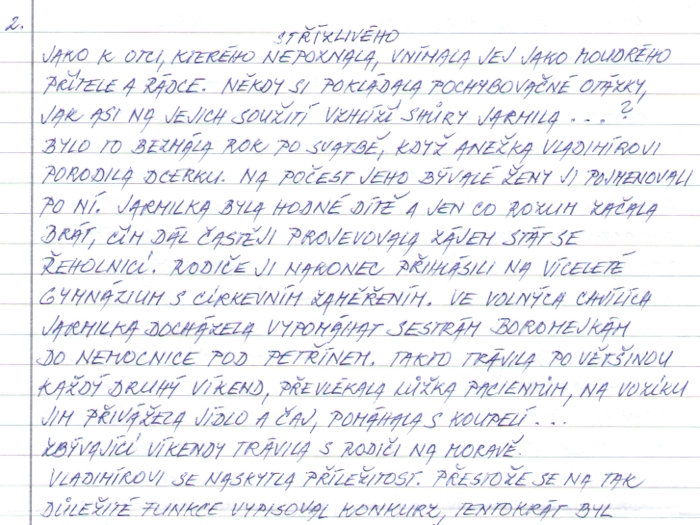 2.
STŘÍZLIVÉHO
JAKO K OTCI, KTERÉHO NEPOZNALA, VNÍMALA JEJ JAKO MOUDRÉHO
PŘÍTELE A RÁDCE. NĚKDY SI POKLÁDALA POCHYBOVAČNÉ OTÁZKY,
JAK ASI NA JEJICH SOUŽITÍ VZHLÍŽÍ SHŮRY JARMILA...?
BYLO TO BEZMÁLA ROK PO SVATBĚ, KDYŽ ANEŽKA VLADIMÍROVI
PORODILA DCERKU. NA POČEST JEHO BÝVALÉ ŽENY JI POJMENOVALI
PO NÍ. JARMILKA BYLA HODNÉ DÍTĚ A JEN CO ROZUM ZAČALA
BRÁT, ČÍM DÁL ČASTĚJI PROJEVOVALA ZÁJEM STÁT SE
ŘEHOLNICÍ. RODIČE JI NAKONEC PŘIHLÁSILI NA VÍCELETÉ
GYMNÁZIUM S CÍRKEVNÍM ZAMĚŘENÍM. VE VOLNÝCH CHVÍLÍCH
JARMILKA DOCHÁZELA VYPOMÁHAT SESTRÁM BOROMEJKÁM
DO NEMOCNICE POD PETŘÍNEM. TAKTO TRÁVILA PO VĚTŠINOU
KAŽDÝ DRUHÝ VÍKEND, PŘEVLÉKALA LŮŽKA PACIENTŮM, NA VOZÍKU
JIM PŘIVÁŽELA JÍDLO A ČAJ, POMÁHALA S KOUPELÍ...
ZBÝVAJÍCÍ VÍKENDY TRÁVILA S RODIČI NA MORAVĚ.
VLADIMÍROVI SE NASKYTLA PŘÍLEŽITOST. PŘESTOŽE SE NA TAK
DŮLEŽITÉ FUNKCE VYPISOVAL KONKURZ, TENTOKRÁT BYL